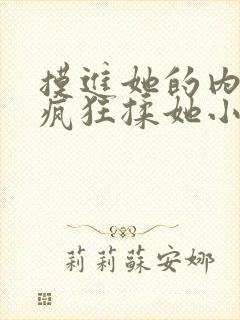 摸進她的內
瘋狂揉她小
莉莉蘇安娜